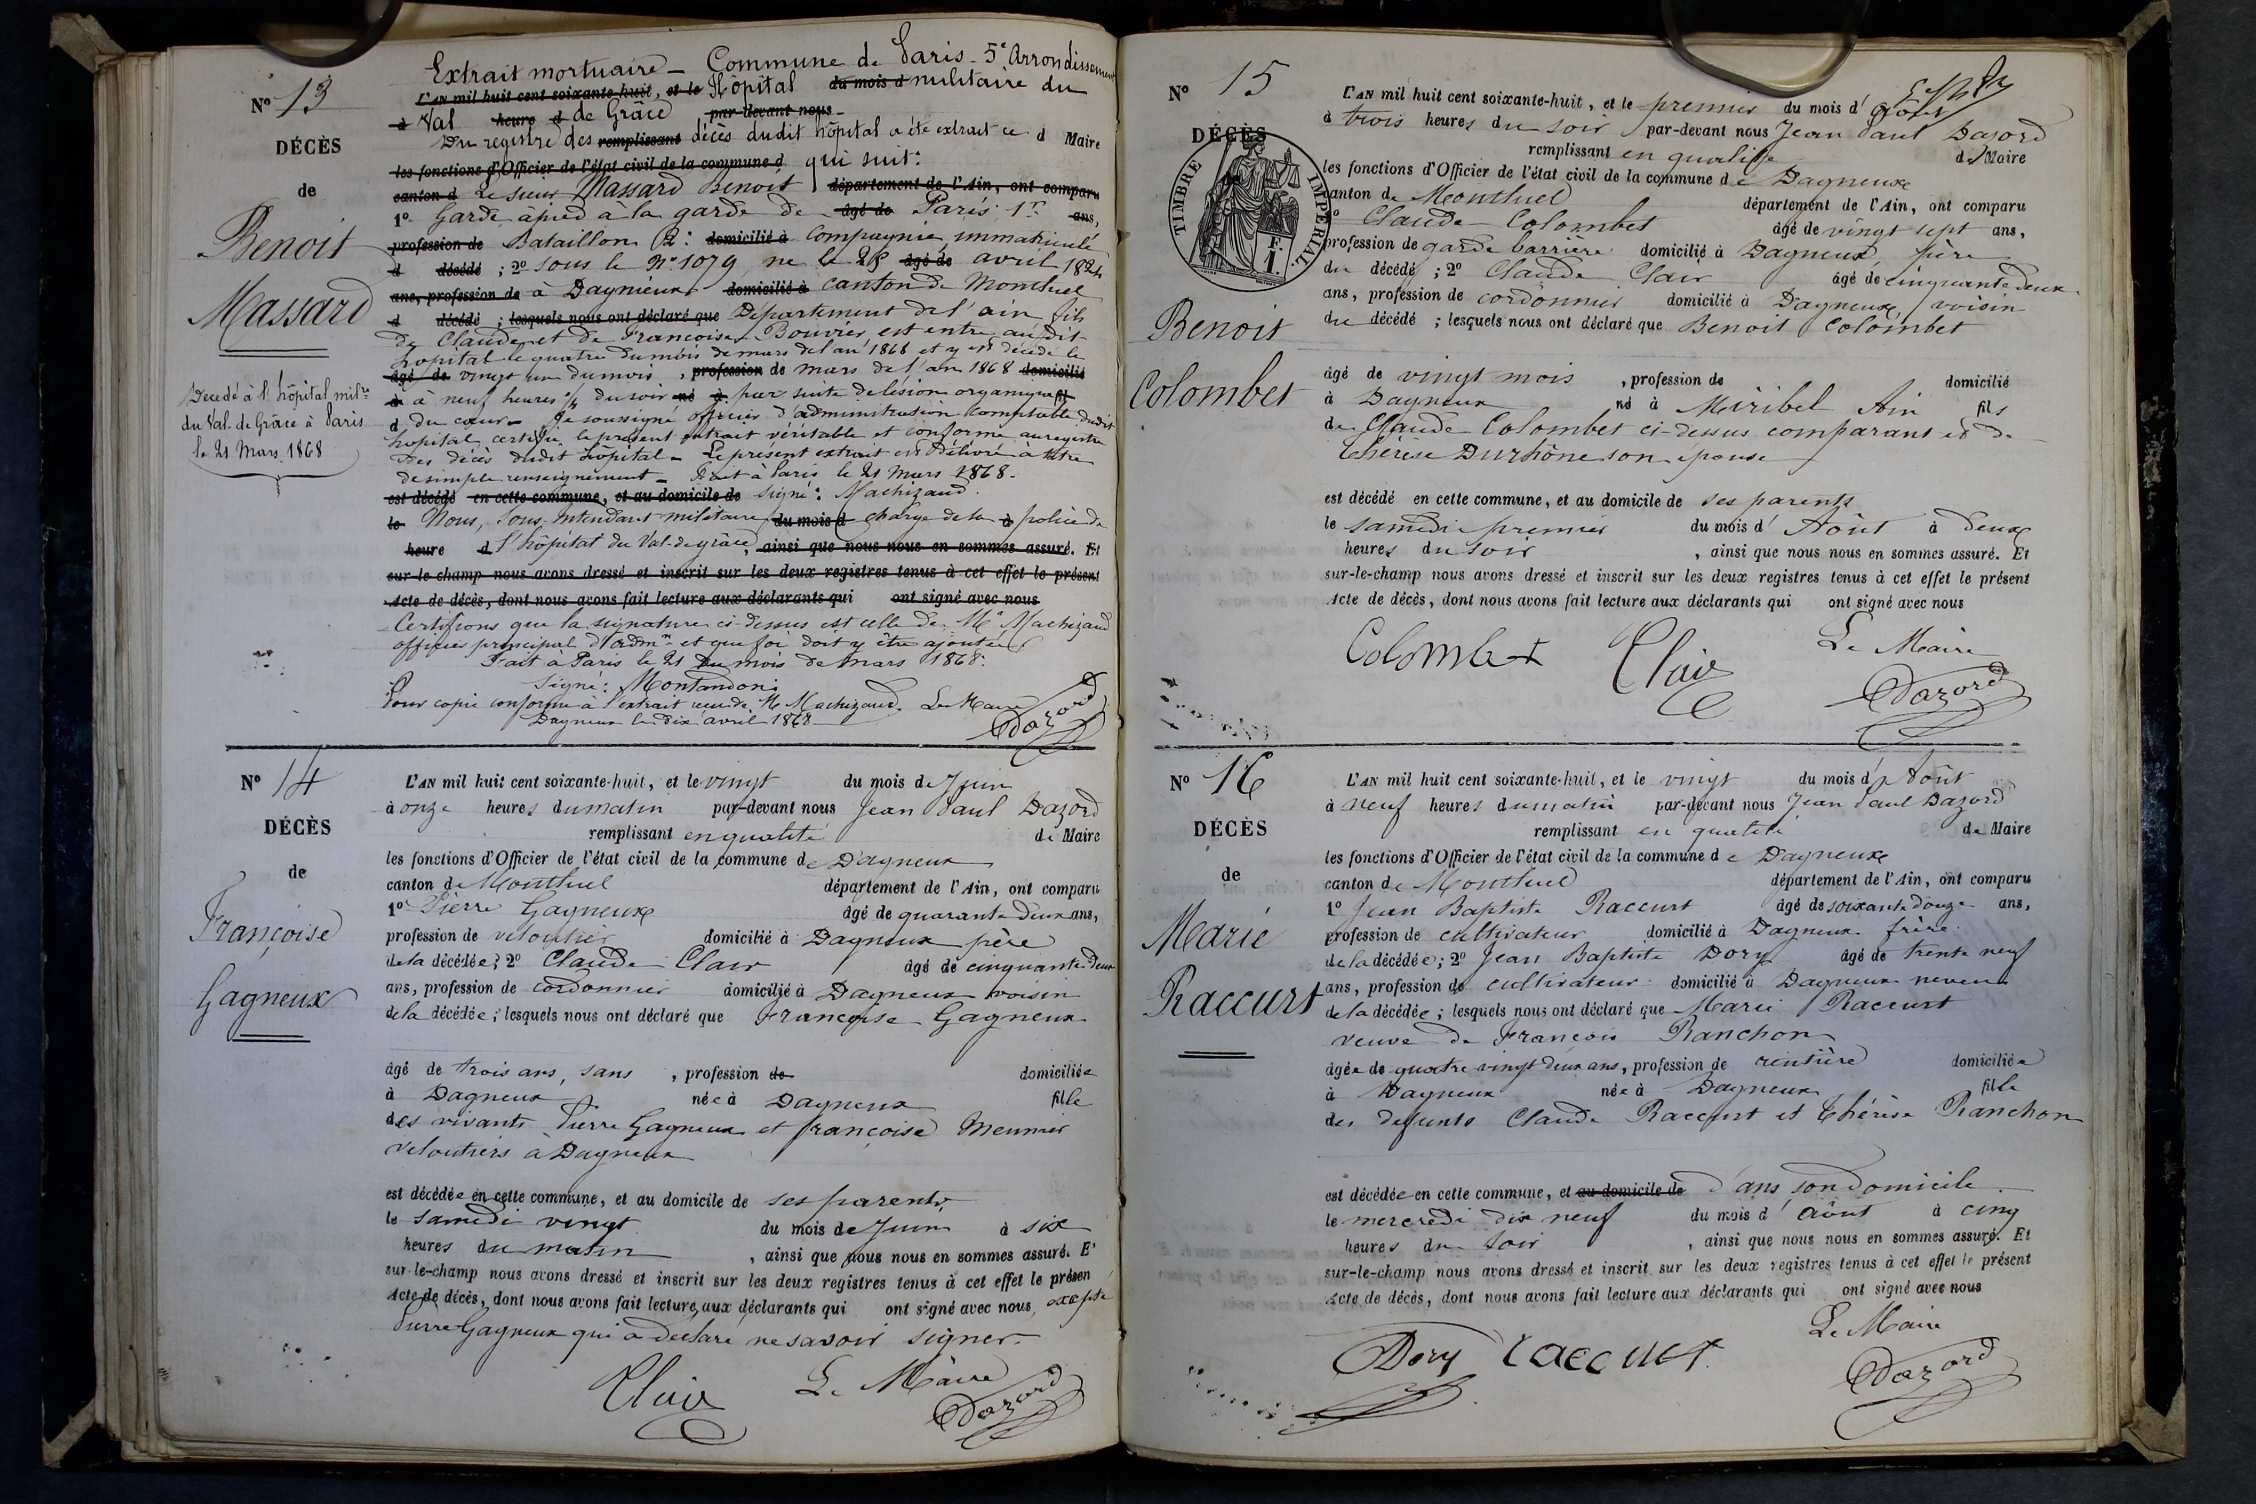 Extrait mortuaire - Commune de Paris - 5e Arrondissement
No 13
L'AN mil huit cent soixante-huit, et le Hôpital du mois d militaire du
à Val heure d de Grâce par-devant nous
DÉCÈS
Du registre des remplissant décès dudit hôpital a été extrait ce d Maire
les fonctions d'Officier de l'état civil de la commune d qui suit:
de
canton d Le sieur Massard Benoit département de l'Ain, ont comparu
1o Garde à pied à la garde de âgé de Paris 1r ans,
Benoit
profession de Bataillon 2e domicilié à Compagnie immatriculé
d décédé ; 2o sous le No 1079, né le 28 âgé de avril 1824
Massard
ans, profession de à Dagneux domicilié à canton de Montluel
d décédé ; lesquels nous ont déclaré que Département de l'ain fils
de Claude et de Françoise Bouvier est entré au dit
hopital le quatre du mois de mars de l'an 1868 et y est décédé le
âgé de vingt un du mois , profession de de mars de l'an 1868 domicilié
à à neuf heures du soir né à par suite de lésion organique
Décédé à l'hôpital milre
du Val-de-Grâce à Paris
le 21 Mars 1868
d du cœur - Je soussigné officier d'administration comptable dudit
hopital certifie le présent extrait véritable et conforme au registre
des décès dudit hôpital - Le présent extrait est délivré à titre
de simple renseignement - Fait à Paris le 21 Mars 1868 -
est décédé en cette commune, et au domicile de Signé: Machizaud
le Nous, Sous-Intendant militaire du mois d chargé de la à police de
heure d l'hôpital du Val-de-grâce, ainsi que nous nous en sommes assuré. Et
sur-le-champ nous avons dressé et inscrit sur les deux registres tenus à cet effet le présent
Acte de décès, dont nous avons fait lecture aux déclarants qui ont signé avec nous
Certifions que la signature ci-dessus est celle de Mr Machizaud
officier principal d'admon et que foi doit y être ajoutée
Fait à Paris le 21 du mois de mars 1868.
Signé: Montandon
Pour copie conforme à l'extrait reçu de Mr Machizaud. Le Maire
Dagneux le dix avril 1868
Dazord
No 14
L'AN mil huit cent soixante-huit, et le vingt du mois de Juin
à onze heures du matin par-devant nous Jean Paul Dazord
DÉCÈS
remplissant en qualité de Maire
les fonctions d'Officier de l'état civil de la commune de Dagneux
de
canton de Montluel département de l'Ain, ont comparu
1o Pierre Gagneux âgé de quarante deux ans,
Françoise
profession de veloutier domicilié à Dagneux père
de la décédée ; 2o Claude Clair âgé de cinquante-deux
Gagneux
ans, profession de cordonnier domicilié à Dagneux voisin
de la décédée ; lesquels nous ont déclaré que Françoise Gagneux
âgé de trois ans, sans , profession de domiciliée
à Dagneux née à Dagneux fille
des vivants Pierre Gagneux et françoise Meunier
veloutiers à Dagneux
est décédée en cette commune, et au domicile de ses parents
le samedi vingt du mois de Juin à six
heures du matin , ainsi que nous nous en sommes assuré. Et
sur-le-champ nous avons dressé et inscrit sur les deux registres tenus à cet effet le présen
Acte de décès, dont nous avons fait lecture aux déclarants qui ont signé avec nous excepté
Pierre Gagneux qui a déclaré ne savoir signer.
Clair Le Maire
Dazord
No 15
L'AN mil huit cent soixante-huit, et le premier du mois d'Août
à trois heures du soir par-devant nous Jean Paul Dazord
DÉCÈS
remplissant en qualité de Maire
les fonctions d'Officier de l'état civil de la commune de Dagneux
TIMBRE IMPÉRIAL
F. 1.
canton de Montluel département de l'Ain, ont comparu
1o Claude Colombet âgé de vingt sept ans,
profession de garde barrière domicilié à Dagneux, père
du décédé ; 2o Claude Clair âgé de cinquante deux
ans, profession de cordonnier domicilié à Dagneux, voisin
Benoit
du décédé ; lesquels nous ont déclaré que Benoit Colombet
Colombet
âgé de vingt mois , profession de domicilié
à Dagneux né à Miribel Ain fils
de Claude Colombet ci-dessus comparant et de
Thérèse Durhône son epouse
est décédé en cette commune, et au domicile de ses parents
le samedi premier du mois d'Août à deux
heures du soir , ainsi que nous nous en sommes assuré. Et
sur-le-champ nous avons dressé et inscrit sur les deux registres tenus à cet effet le présent
Acte de décès, dont nous avons fait lecture aux déclarants qui ont signé avec nous
Colombet Clair Le Maire
Dazord
No 16
L'AN mil huit cent soixante-huit, et le vingt du mois d'Août
à neuf heures du matin par-devant nous Jean Paul Dazord
DÉCÈS
remplissant en qualité de Maire
les fonctions d'Officier de l'état civil de la commune de Dagneux
de
canton de Montluel département de l'Ain, ont comparu
1o Jean Baptiste Raccurt âgé de soixante douze ans,
Marie
profession de cultivateur domicilié à Dagneux frère
de la décédée ; 2o Jean Baptiste Dory âgé de trente neuf
Raccurt
ans, profession de cultivateur domicilié à Dagneux neveu
de la décédée ; lesquels nous ont déclaré que Marie Raccurt
veuve de François Ranchon
âgée de quatre vingt deux ans, profession de rentière domiciliée
à Dagneux née à Dagneux fille
des defunts Claude Raccurt et Thérèse Ranchon
est décédée en cette commune, et au domicile de dans son domicile
le mercredi dix neuf du mois d'août à cinq
heures du soir , ainsi que nous nous en sommes assuré. Et
sur-le-champ nous avons dressé et inscrit sur les deux registres tenus à cet effet le présent
Acte de décès, dont nous avons fait lecture aux déclarants qui ont signé avec nous
Le Maire
Dory raccurt
Dazord